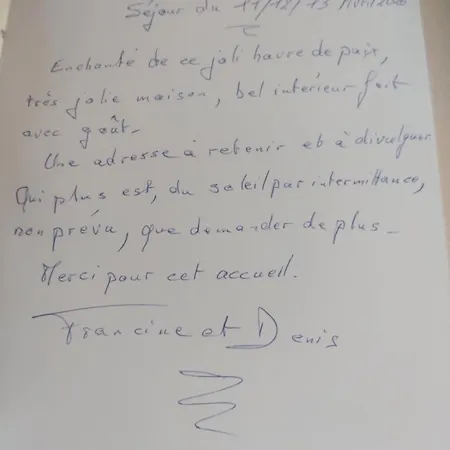 Séjour du 11/12/13 Avril
Enchanté de ce joli havre de paix,
très jolie maison, bel intérieur fait
avec goût.
Une adresse à retenir et à divulguer
Qui plus est, du soleil par intermittance,
non prévu, que demander de plus_
Merci pour cet accueil.
Francine et Denis